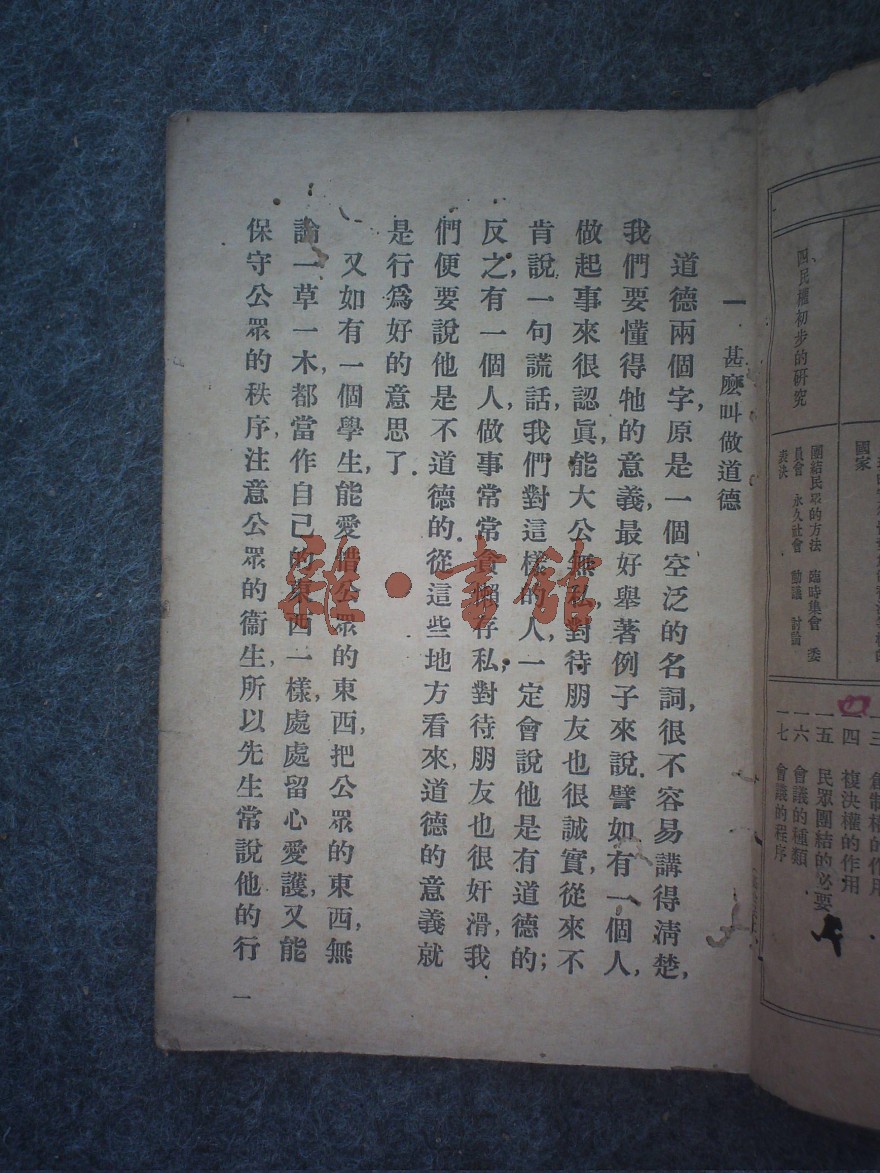 國家
四、民權初步的研究
團結民眾的方法 臨時集會 委
員會 永久社會 動議 討論
表決
一三 創制權的作用
一四 複決權的作用
一五 民眾團結的必要
一六 會議的種類
一七 會議的程序
一 甚麽叫做道德
道德兩個字,原是一個空泛的名詞,很不容易講得淸楚,
我們要懂得牠的意義,最好舉著例子來說.譬如有一個人,
做起事來很認眞,能大公無私,對待朋友也很誠實,從來不
肯說一句謊話,我們對這樣的人,一定會說他是有道德的;
反之,有一個人,做事常常貪懶存私,對待朋友也很奸滑,我
們便要說他是不道德的.從這些地方看來,道德的意義就
是行爲好的意思了.
又如有一個學生,能愛惜公眾的東西,把公眾的東西,無
論一草一木,都當作自己的東西一樣,處處留心愛護,又能
保守公眾的秩序,注意公眾的衞生,所以先生常說他的行
一
雜·書館